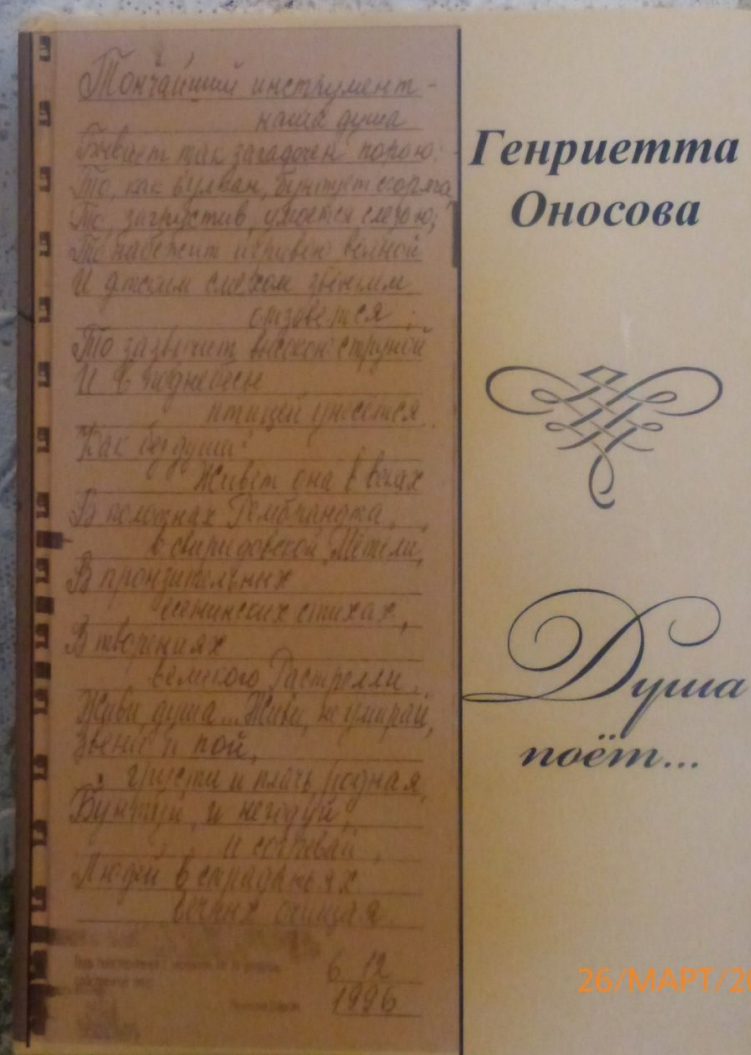 Тончайший инструмент -
наша душа
Бывает так загадочен порою:
То, как вулкан, бунтует
То, загрустив, умоется слезою;
То набежит игривою волной
И детским смехом звонким
отзовется;
То зазвучит высокой струной
И в поднебесье
птицей унесется.
Как без души?
Живет она в веках
В полотнах Рембрандта,
в свиридовской Метели,
В пронзительных
есенинских стихах,
В творениях
великого Растрелли.
Живи душа... Живи, не умирай,
Звени и пой,
грусти и плачь родная,
Бунтуй, и негодуй,
и согревай,
Людей в страданьях
вечных очищая.
6 12
1996
Генриетта
Оносова
Душа
поёт...
26/МАРТ/20